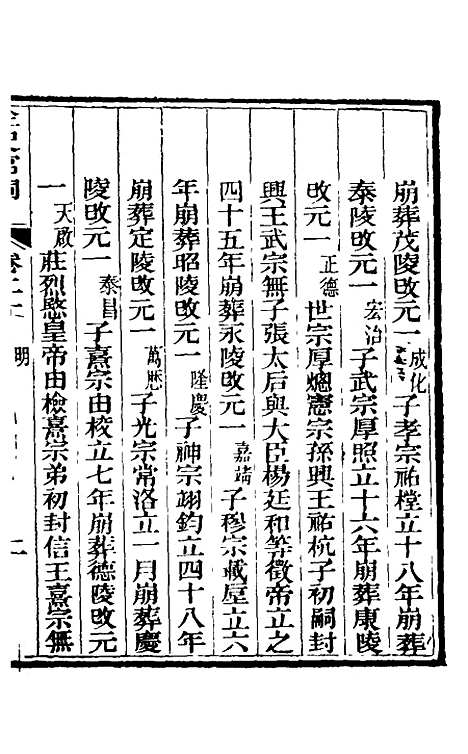 崩葬茂陵改元一成化子孝宗祐樘立十八年崩葬
泰陵改元一宏治子武宗厚照立十六年崩葬康陵
改元一正德世宗厚熜憲宗孫興王祐杬子初嗣封
興王武宗無子張太后與大臣楊廷和等徵帝立之
四十五年崩葬永陵改元一嘉靖子穆宗載垕立六
年崩葬昭陵改元一隆慶子神宗翊鈞立四十八年
崩葬定陵改元一萬厯子光宗常洛立一月崩葬慶
陵改元一泰昌子熹宗由校立七年崩葬德陵改元
一天啟莊烈愍皇帝由檢熹宗弟初封信王熹宗無
卷二 明 二